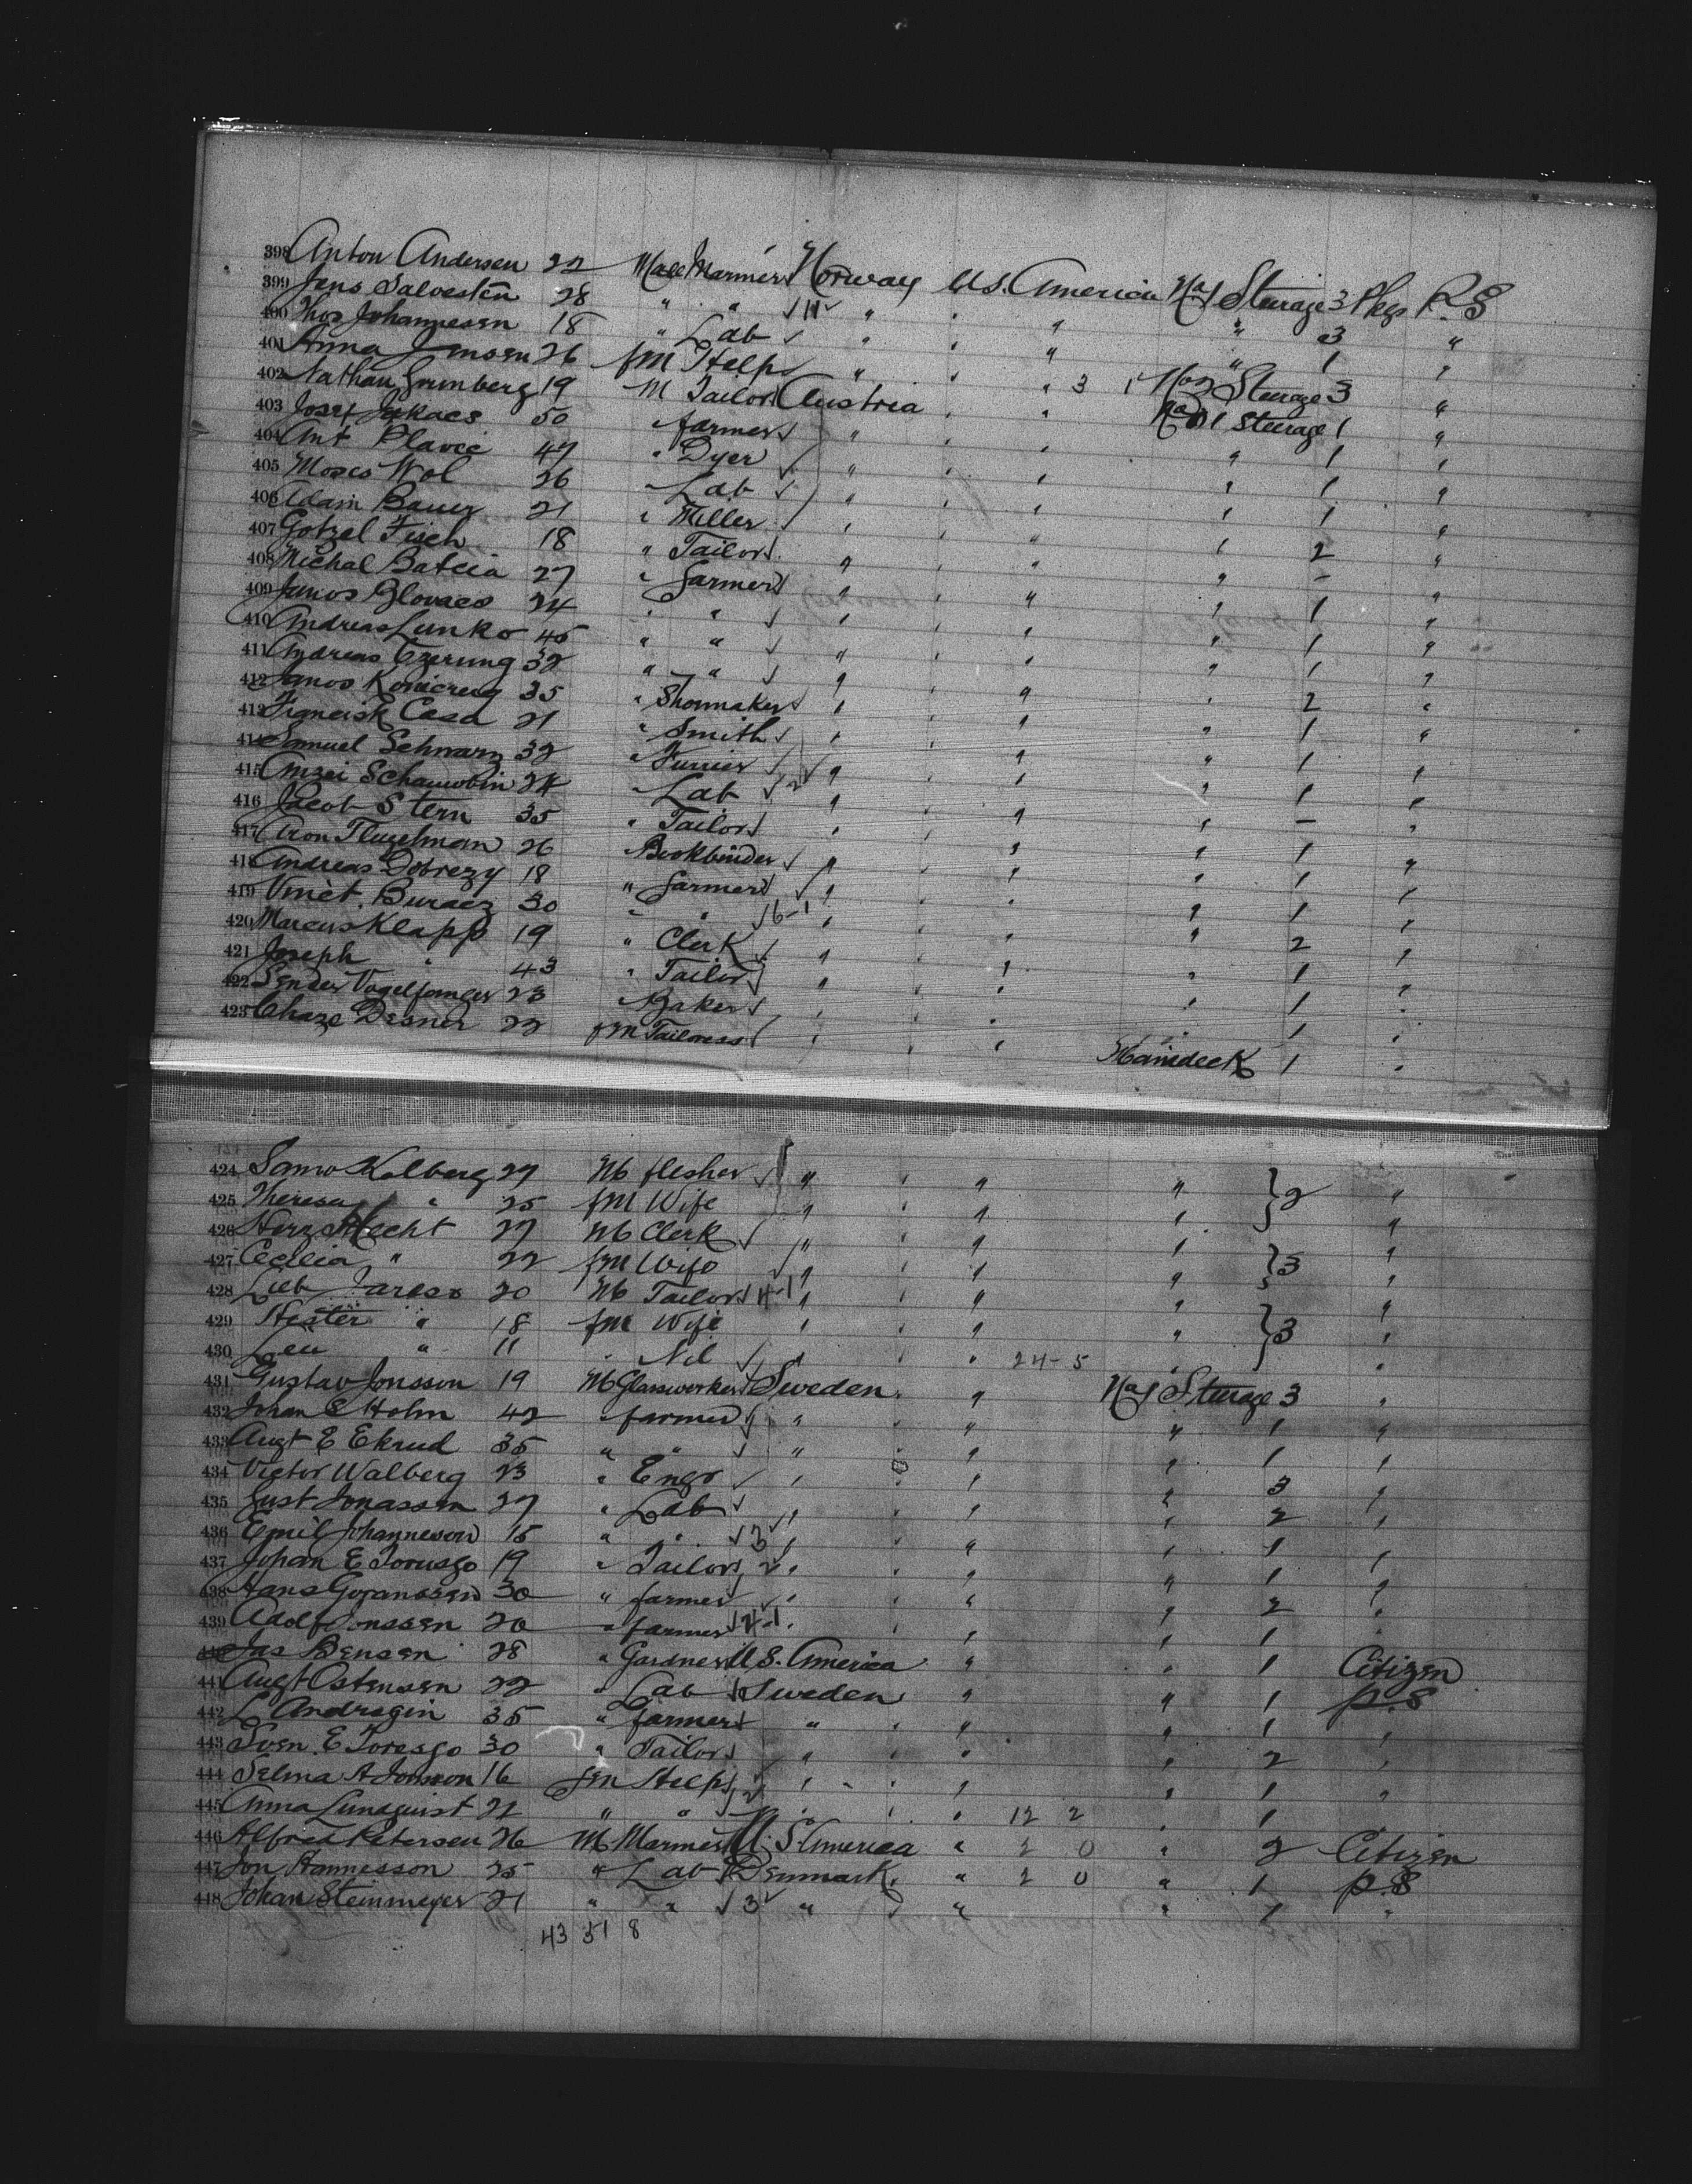 398 Anton Andersen 22 Male Mariner Norway U.S. America No 1 Steerage 3 Pkgs P.S
399 Jens Salvesten 28 " " 11 " " " " 3 "
400 Thos Johannesen 18 " Lab " " " " 1 "
401 Anna Jensen 26 fm Help " " " 3 1 No 2 Steerage 3 "
402 Nathan Grunberg 19 M Tailor Austria " " No 1 Steerage 1 "
403 Josef Jukacs 50 " farmer " " " " 1 "
404 Ant Plavec 47 " Dyer " " " " 1 "
405 Moses Wol 26 " Lab " " " " 1 "
406 Adam Bauer 21 " Miller " " " " 2 "
407 Gotzel Fisch 18 " Tailor " " " " - "
408 Michal Batcia 27 " farmer " " " " 1 "
409 Janos Glovacs 24 " " " " " " 1 "
410 Andreas Lunko 45 " " " " " " 1 "
411 Andreas Czerung 32 " " " " " " 2 "
412 Janos 35 " Shoemaker " " " " 1 "
413 Francisk Casa 21 " Smith " " " " 1 "
414 Samuel Schwarz 32 " Furrier " " " " 1 "
415 Schauwobin 24 " Lab 2 " " " " - "
416 Jacob Stern 35 " Tailor " " " " 1 "
417 Aron Fluzelman 26 " Bookbinder " " " " 1 "
418 Andreas Dobrezy 18 " farmer " " " " 1 "
419 Vinct. Buracz 30 " " 6-1 " " " " 2 "
420 Marcus Klapp 19 " Clerk " " " " 1 "
421 Joseph " 43 " Tailor " " " " 1 "
422 Sender Vogelfanger 23 " Baker " " " " 1 "
423 Chaze Desner 22 fm Tailoress " " " Maindeck 1 "
424 Kolberg 27 M flesher " " " " } 2 "
425 Theresa " 25 fm Wife " " " " "
426 Herz Hecht 27 M Clerk " " " " } 3 "
427 Cecilia " 22 fm Wife " " " " "
428 Lieb 20 M Tailor 4-1 " " " " } 3 "
429 Hester " 18 fm Wife " " " " "
430 Leu " 11 " Nil " " " 24-5 " "
431 Gustav Jonsson 19 M Glassworker Sweden " " No 1 Steerage 3 "
432 Johan E Holm 42 " farmer " " " " 1 "
433 Augt E Ekrud 35 " " " " " " 1 "
434 Victor Walberg 23 " Engr " " " " 3 "
435 Just Jonassen 27 " Lab " " " " 2 "
436 Emil Johanneson 18 " " 3 " " " " 1 "
437 Johan E Torusgo 19 " Tailor 2 " " " " 1 "
438 Hans Goransson 30 " farmer " " " " 2 "
439 Adolf Jonssen 20 " farmer 4-1 " " " " 1 "
440 Jas Bensen 28 " Gardner U.S. America " " 1 Citizen
441 Augt Ostensen 22 " Lab Sweden " " 1 P.S
442 L Andregin 35 " farmer " " " " 1 "
443 Sven E Toresgo 30 " Tailor " " " " 2 "
444 Selma A Jonsson 16 fm Help " " " " 1 "
445 Anna Lundquist 21 " " 2 " " " 12 2 " 1 "
446 Alfred Petersen 26 M Mariner U.S. America " 2 0 " 2 Citizen
447 Jon Hannesson 25 " Lab Denmark " 2 0 " 1 P.S
448 Johan Steinmeyer 21 " " 3 " " " " 1 "
43 51 8